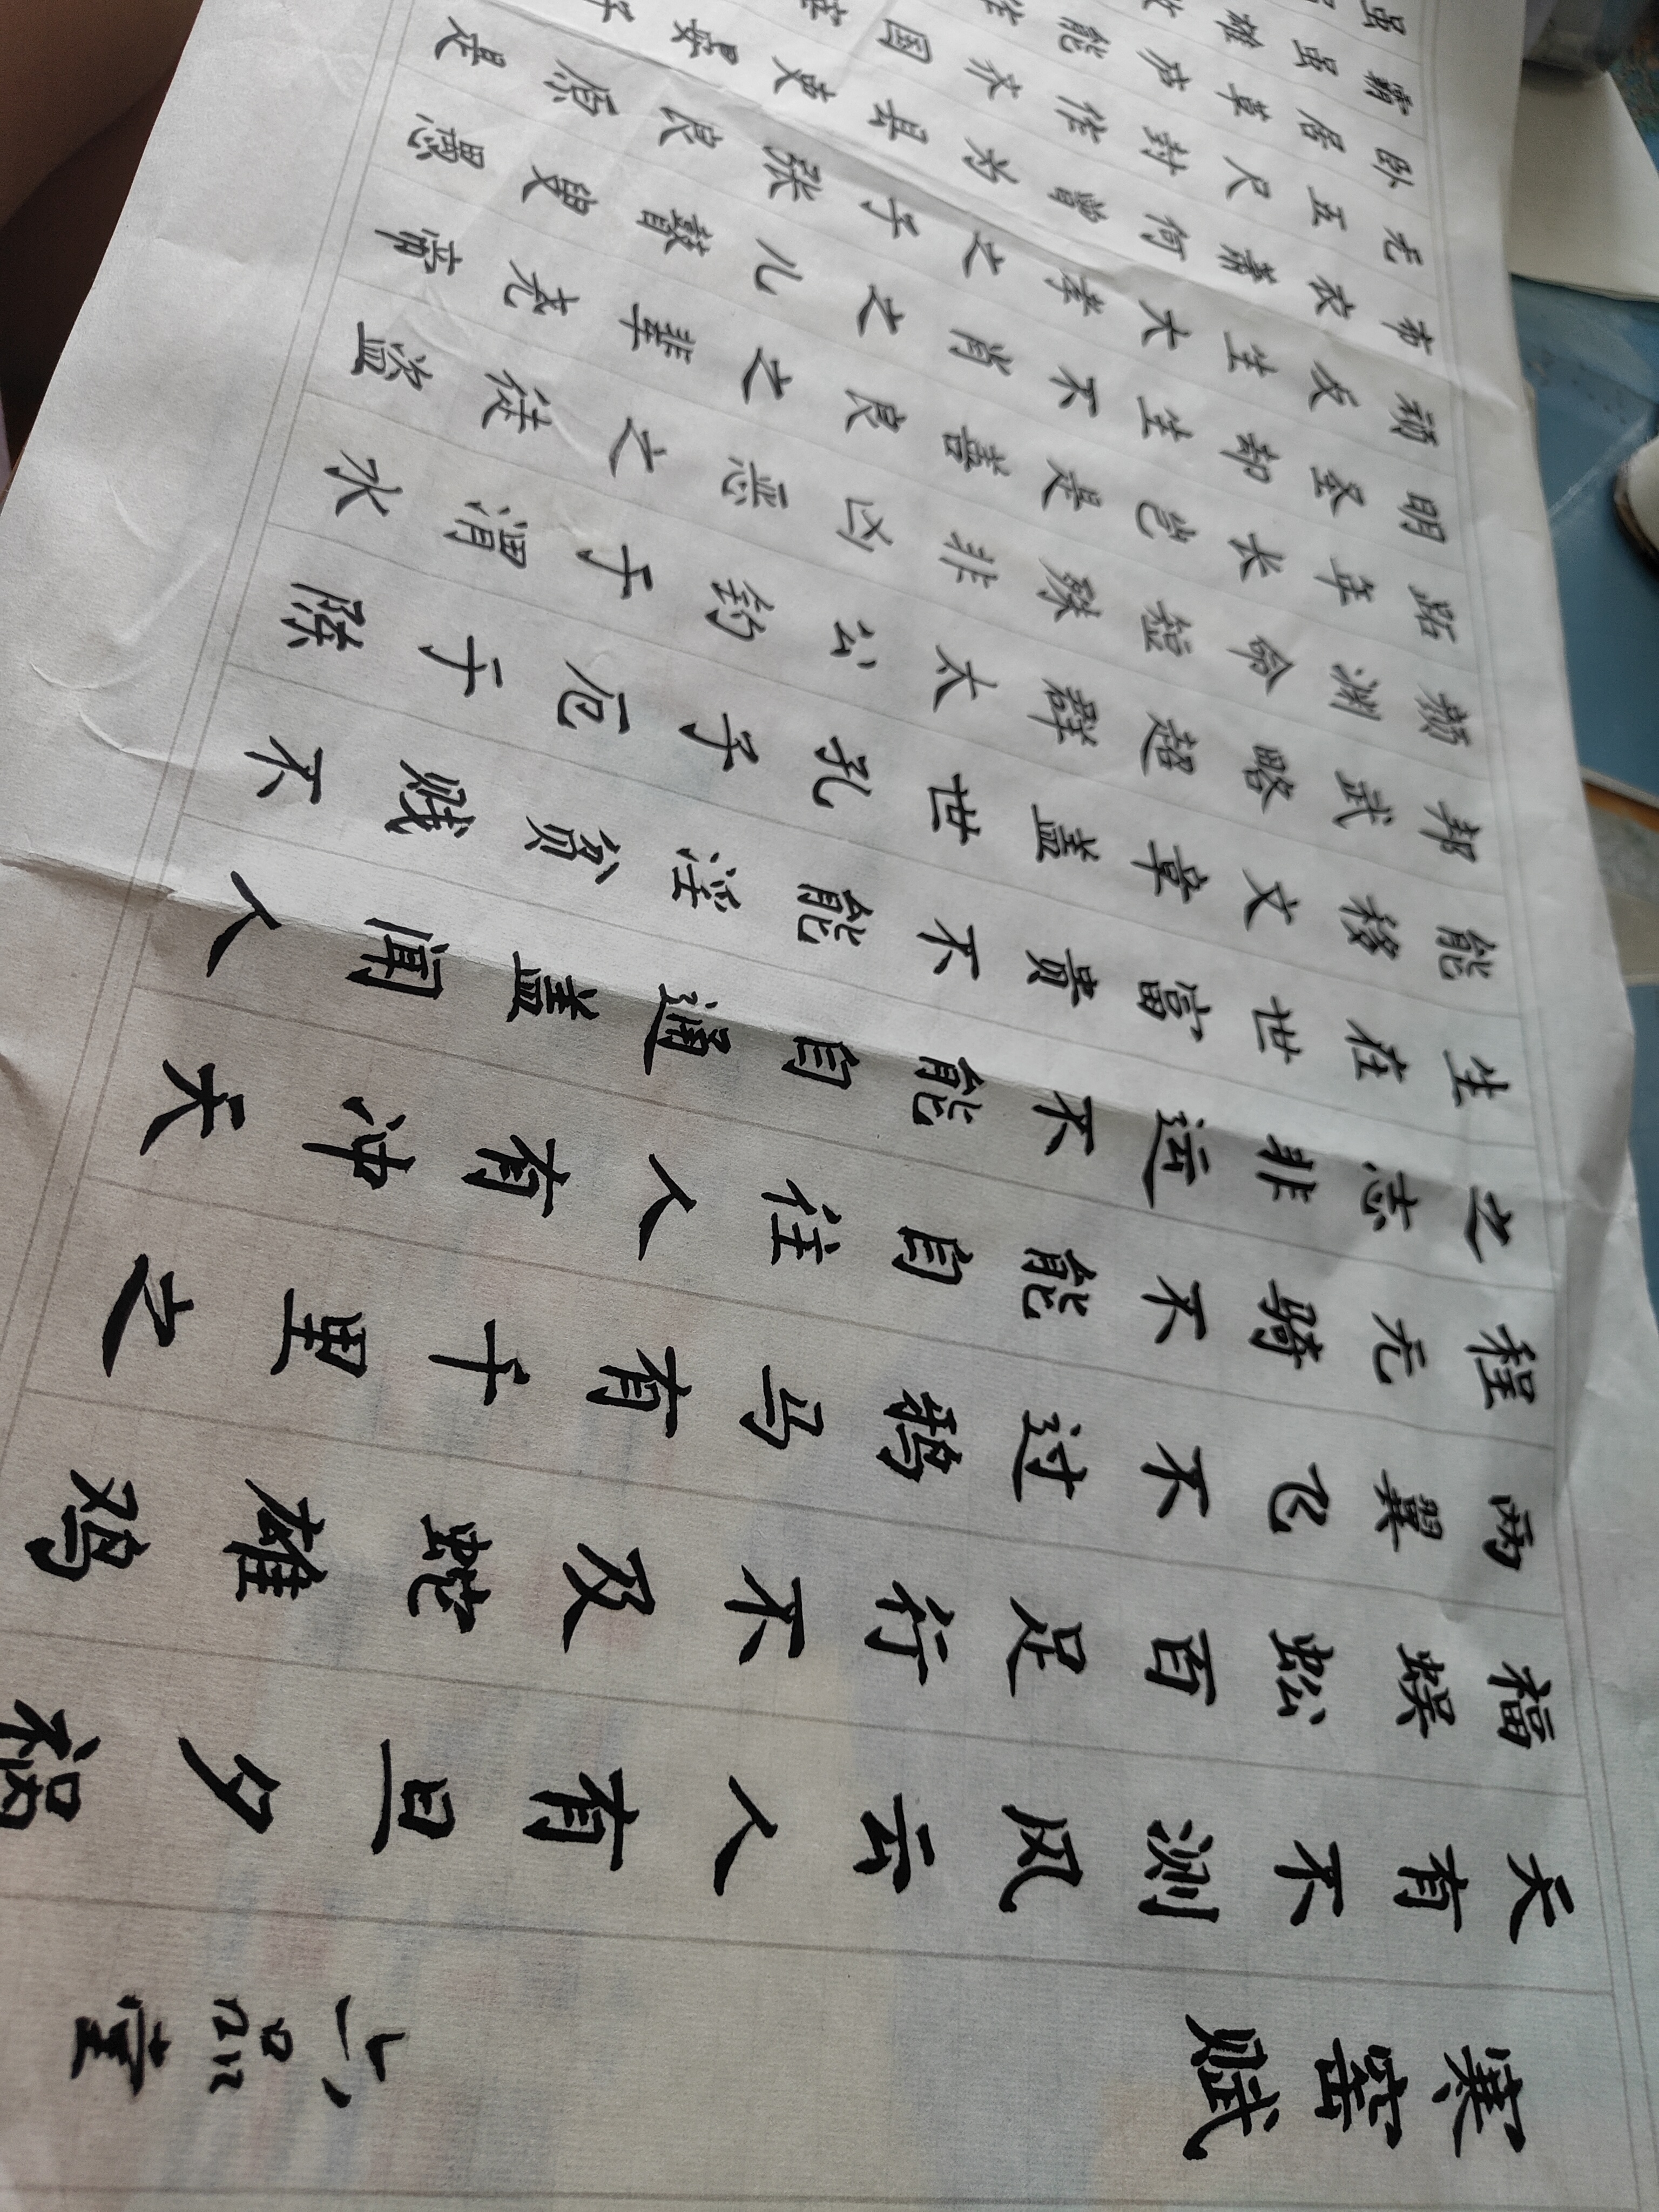 寒窑赋 六品堂
天有不测风云人有旦夕祸
福蜈蚣百足行不及蛇雄鸡
两翼飞不过鸦马有千里之
程无骑不能自往人有冲天
之志非运不能自通盖闻人
生在世富贵不能淫贫贱不
能移文章盖世孔子厄于陈
邦武略超群太公钓于渭水
颜渊命短殊非凶恶之徒盗
跖年长岂是善良之辈尧帝
明圣却生不肖之儿瞽叟愚
顽反生大孝之子张良原是
布衣萧何曾为县吏晏子
无五尺封作齐国宰
卧居草茅能作
霸虽雄败
虽